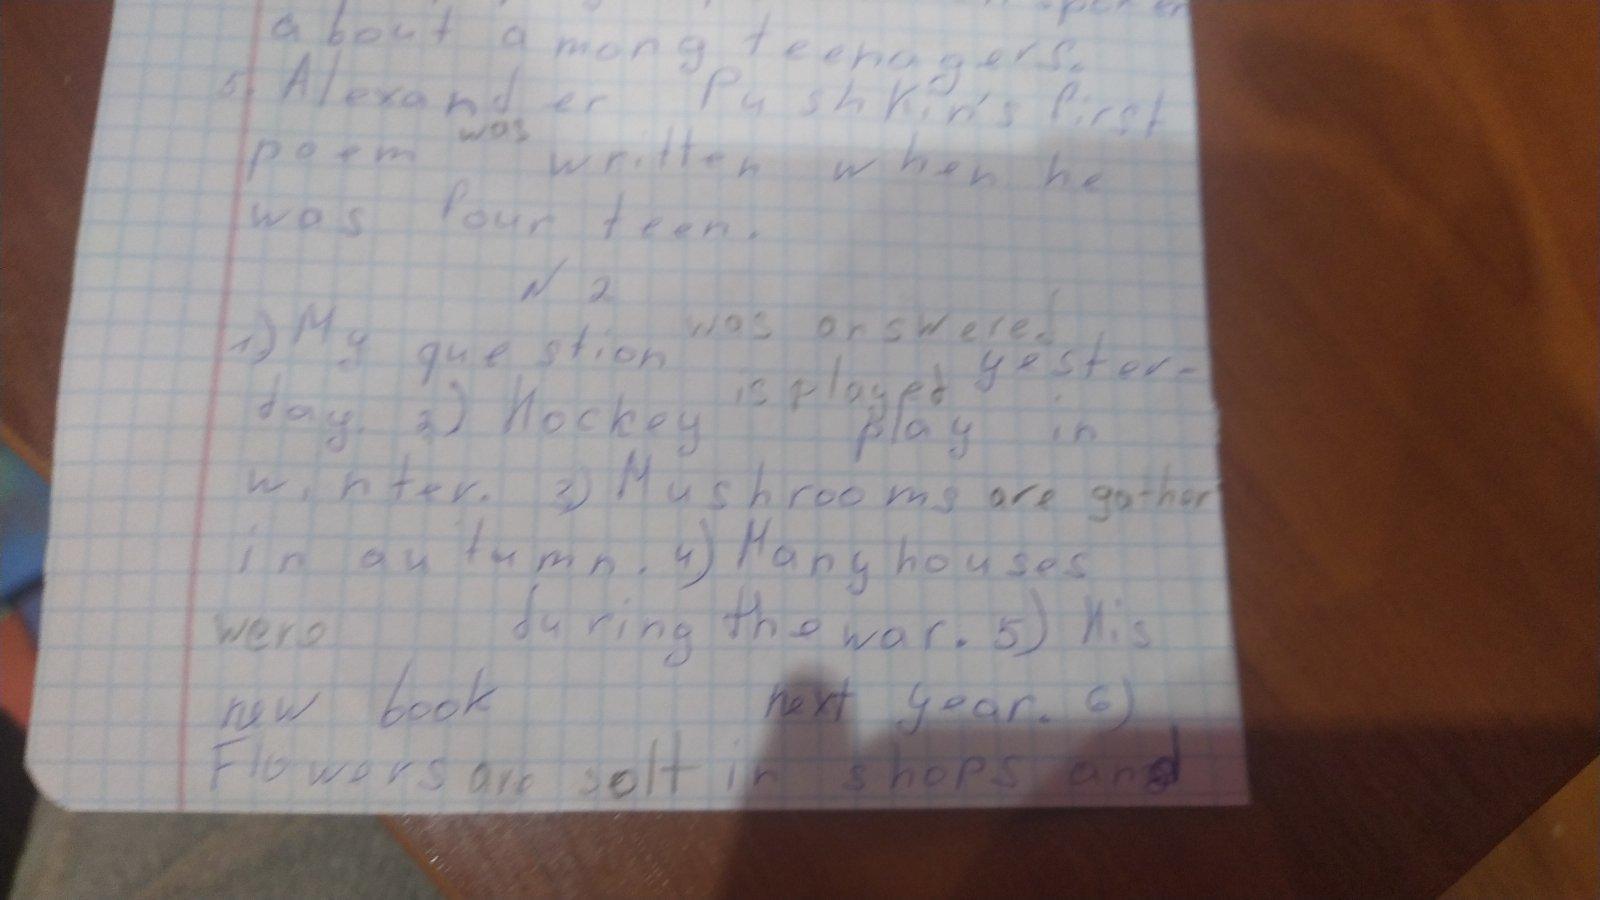 about among teenagers.
5. Alexander Pushkin's first
poem was written when he
was fourteen.
N 2
1) My question was answered yester-
day. 2) Hockey is played play in
winter. 3) Mushrooms are gather
in autumn. 4) Many houses
were during the war. 5) His
new book next year. 6)
Flowers are solt in shops and